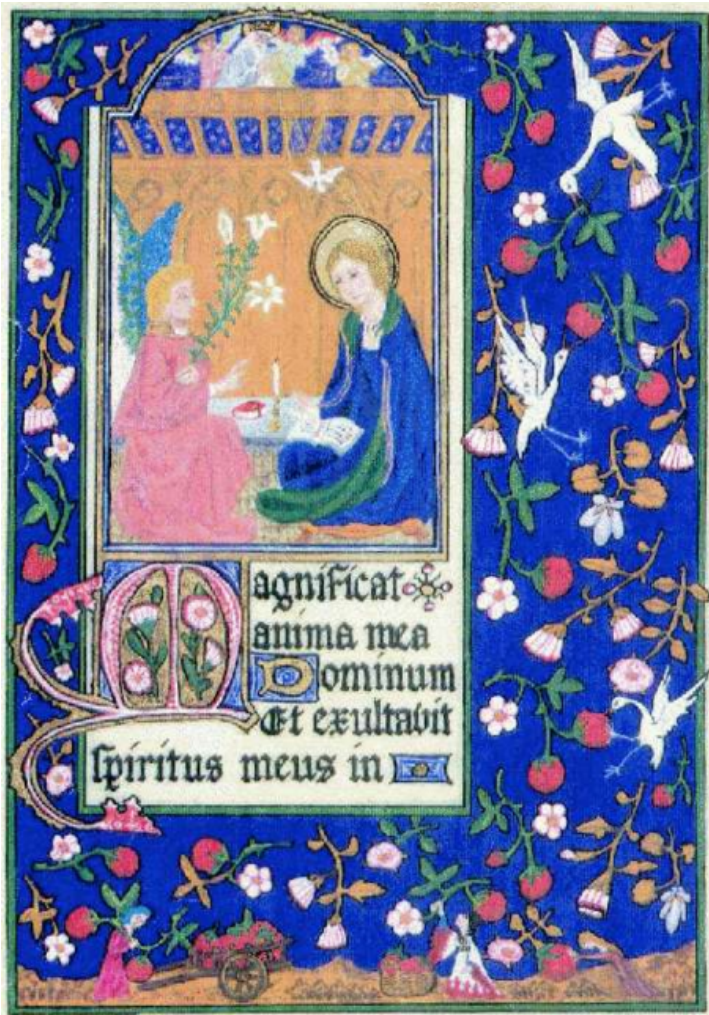 Magnificat
anima mea
Dominum
Et exultavit
ſpiritus meus in